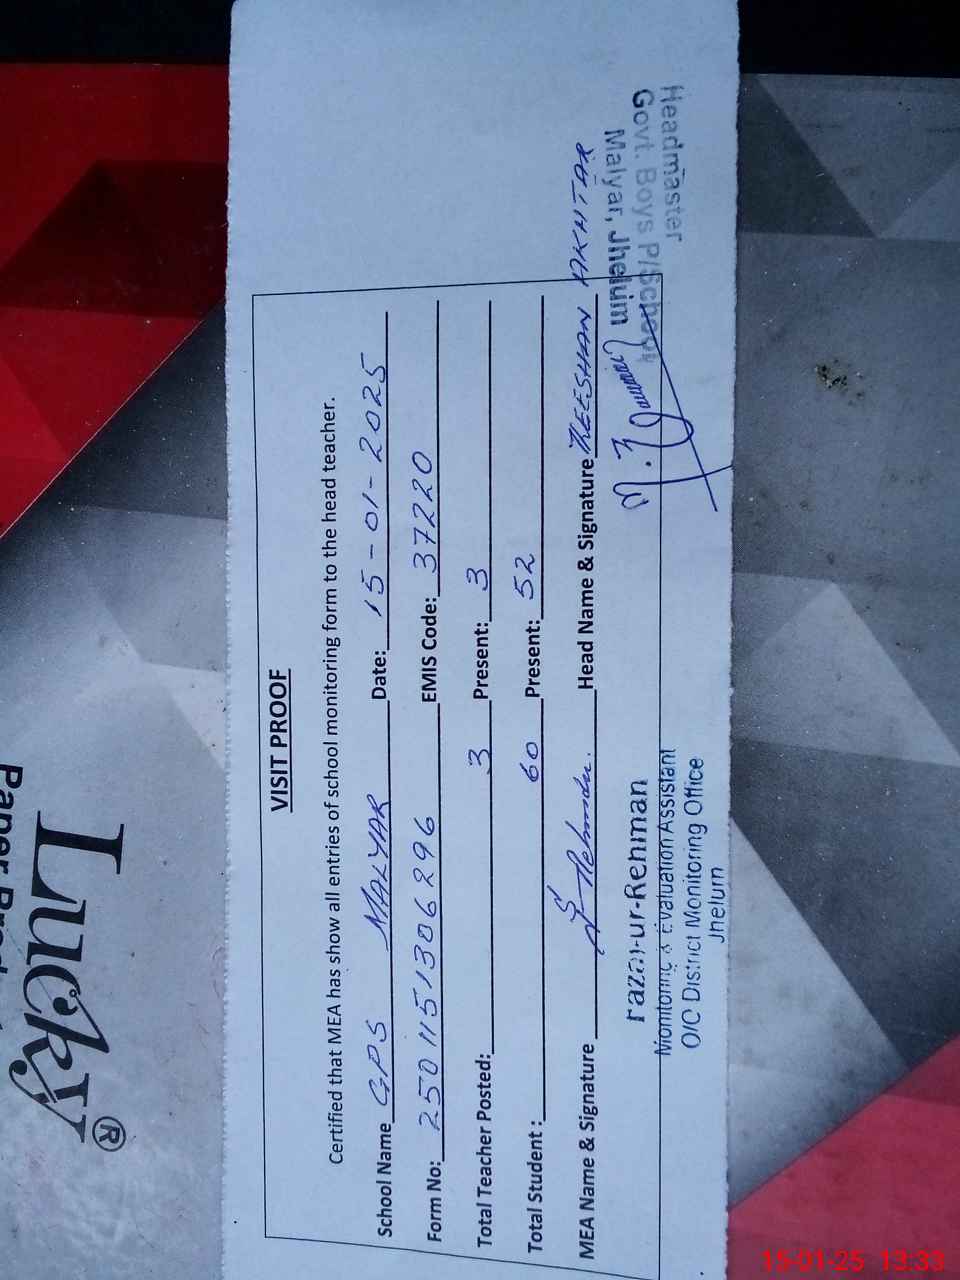 VISIT PROOF
Certified that MEA has show all entries of school monitoring form to the head teacher.
School Name GPS MALYAR Date: 15-01-2025
Form No: 2501151306296 EMIS Code: 37220
Total Teacher Posted: 3 Present: 3
Total Student : 60 Present: 52
MEA Name & Signature Head Name & Signature ZEESHAN AKHTAR
ur-Rehman
Monitoring & Evaluation Assistant
O/C District Monitoring Office
Jhelum
Headmaster
Govt. Boys P/School
Malyar, Jhelum
Lucky®
Paper
15-01-25 13:33